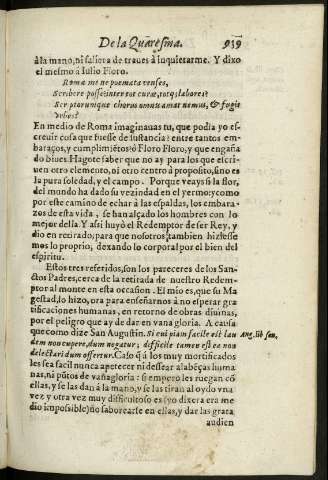 De la Quaresma. 939
à la mano, ni saliera de traues à inquietarme. Y dixo
el mesmo à Iulio Floro.
Roma me ne poemata censes,
Scribere posse? inter tot curas, totq; labores?
Scriptorumque chorus omnis amat nemus, & fugit
vrbes?
En medio de Roma imaginauas tu, que podia yo es-
creuir cosa que fuesse de sustancia? entre tantos em-
baraços, y cumplimiẽtos? ò Floro Floro, y que engaña
do biues. Hagote saber que no ay para los que escri-
uen otro elemento, ni otro centro à proposito, sino es
la pura soledad, y el campo. Porque veays si la flor,
del mondo ha dado su vezindad en el yermo; y como
por este camino de echar à las espaldas, los embara-
zos de esta vida, se han alçado los hombres con lo
mejor della. Y assi huyò el Redemptor de ser Rey, y
dio en retirado, para que nosotros tambien hiziesse
mos lo proprio, dexando lo corporal por el bien del
espiritu.
Estos tres referidos, son los pareceres de los San-
ctos Padres, cerca de la retirada de nuestro Redem-
ptor al monte en esta occasion. El mio es, que su Ma
gestad, lo hizo, ora para enseñarnos à no esperar gra
tificaciones humanas, en retorno de obras diuinas,
por el peligro que ay de dar en vana gloria. A causa
que como dize San Augustin. Si cui piam facile est lau
dem non cupere, dum negatur; difficile tamen est ea non
delectari dum offertur. Caso q̃ à los muy mortificados
les sea facil nunca apetecer ni dessear alabẽças huma
nas, ni pũtos de vanagloria: si empero les ruegan cõ
ellas, y se las dan à la mano, y se las tiran al oydo vna
vez y otra vez muy difficultoso es (yo dixera era me
dio imposible) ño saborearse en ellas, y dar las grata
audien
Aug. lib. sen.